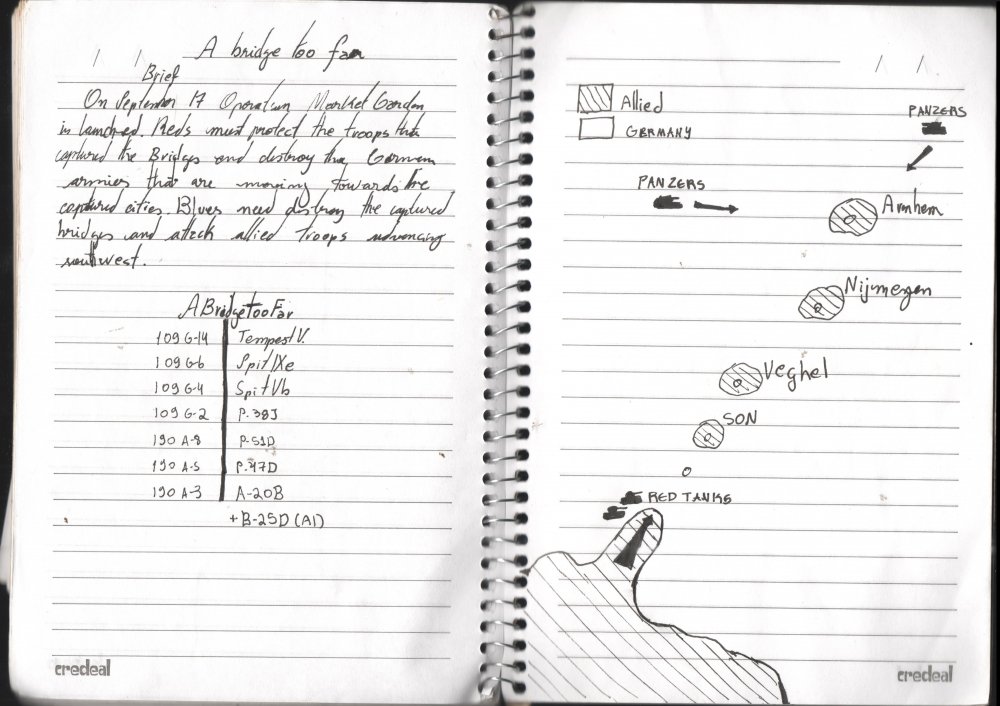 / /
A bridge too far
Brief
On September 17 Operation Market Garden
is launched. Reds must protect the troops that
captured the Bridges and destroy the German
armies that are moving towards the
captured cities. Blues need destroy the captured
bridges and attack allied troops advancing
southwest.
A Bridge too Far
109 G-14 Tempest V.
109 G-6 Spit IXe
109 G-4 Spit Vb
109 G-2 P-38J
190 A-8 P-51D
190 A-5 P-47D
190 A-3 A-20B
+ B-25D (AI)
credeal
/ /
Allied
GERMANY
PANZERS
PANZERS
Arnhem
Nijmegen
Veghel
SON
RED TANKS
credeal